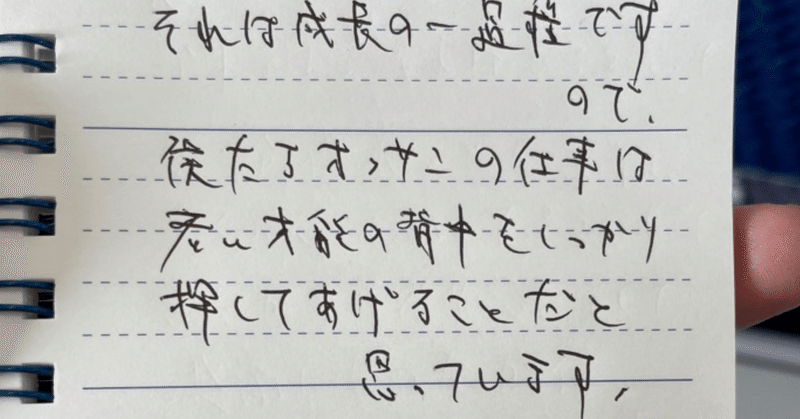 それは成長の一過程です
ので、
僕たちオッサンの仕事は
若い才能の背中をしっかり
押してあげることだと
思っています、